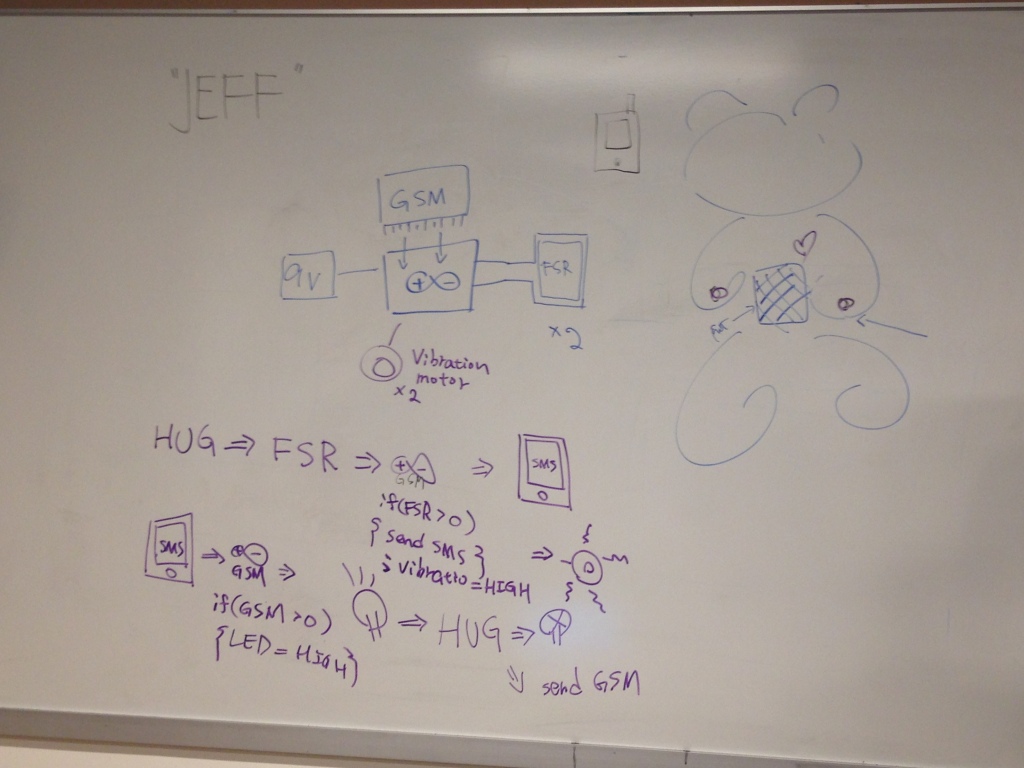 "JEFF"
GSM
9V
+ -
FSR
x2
Vibration
motor
x2
HUG ⇒ FSR ⇒ + - ⇒ SMS
GSM
if(FSR>0)
{ send SMS }
; Vibratio = HIGH
⇒
SMS ⇒ + - ⇒
GSM
if(GSM>0)
{LED = HIGH}
⇒ HUG ⇒
⇒ send GSM